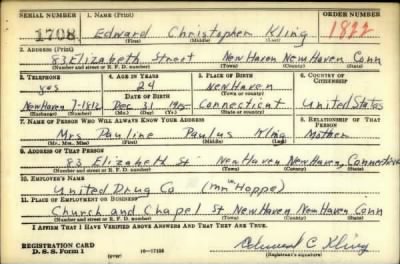 SERIAL NUMBER 1. NAME (Print) ORDER NUMBER
1708 Edward Christopher Kling 1822
(First) (Middle) (Last)
2. ADDRESS (Print)
83 Elizabeth Street New Haven New Haven Conn
(Number and street or R. F. D. number) (Town) (County) (State)
3. TELEPHONE 4. AGE IN YEARS 5. PLACE OF BIRTH 6. COUNTRY OF CITIZENSHIP
yes 24 New Haven
DATE OF BIRTH (Town or county)
New Haven 7-1812 Dec 31 Connecticut United States
(Exchange) (Number) (Mo.) (Day) (Yr.) (State or country)
7. NAME OF PERSON WHO WILL ALWAYS KNOW YOUR ADDRESS 8. RELATIONSHIP OF THAT PERSON
Mrs Pauline Paulus Kling Mother
(Mr., Mrs., Miss) (First) (Middle) (Last)
9. ADDRESS OF THAT PERSON
83 Elizabeth St New Haven New Haven, Connecticut
(Number and street or R. F. D. number) (Town) (County) (State)
10. EMPLOYER'S NAME
United Drug Co (Mr Hoppe)
11. PLACE OF EMPLOYMENT OR BUSINESS
Church and Chapel St New Haven New Haven Conn
(Number and street or R. F. D. number) (Town) (County) (State)
I AFFIRM THAT I HAVE VERIFIED ABOVE ANSWERS AND THAT THEY ARE TRUE.
REGISTRATION CARD
D. S. S. Form 1 (over) Edward C Kling